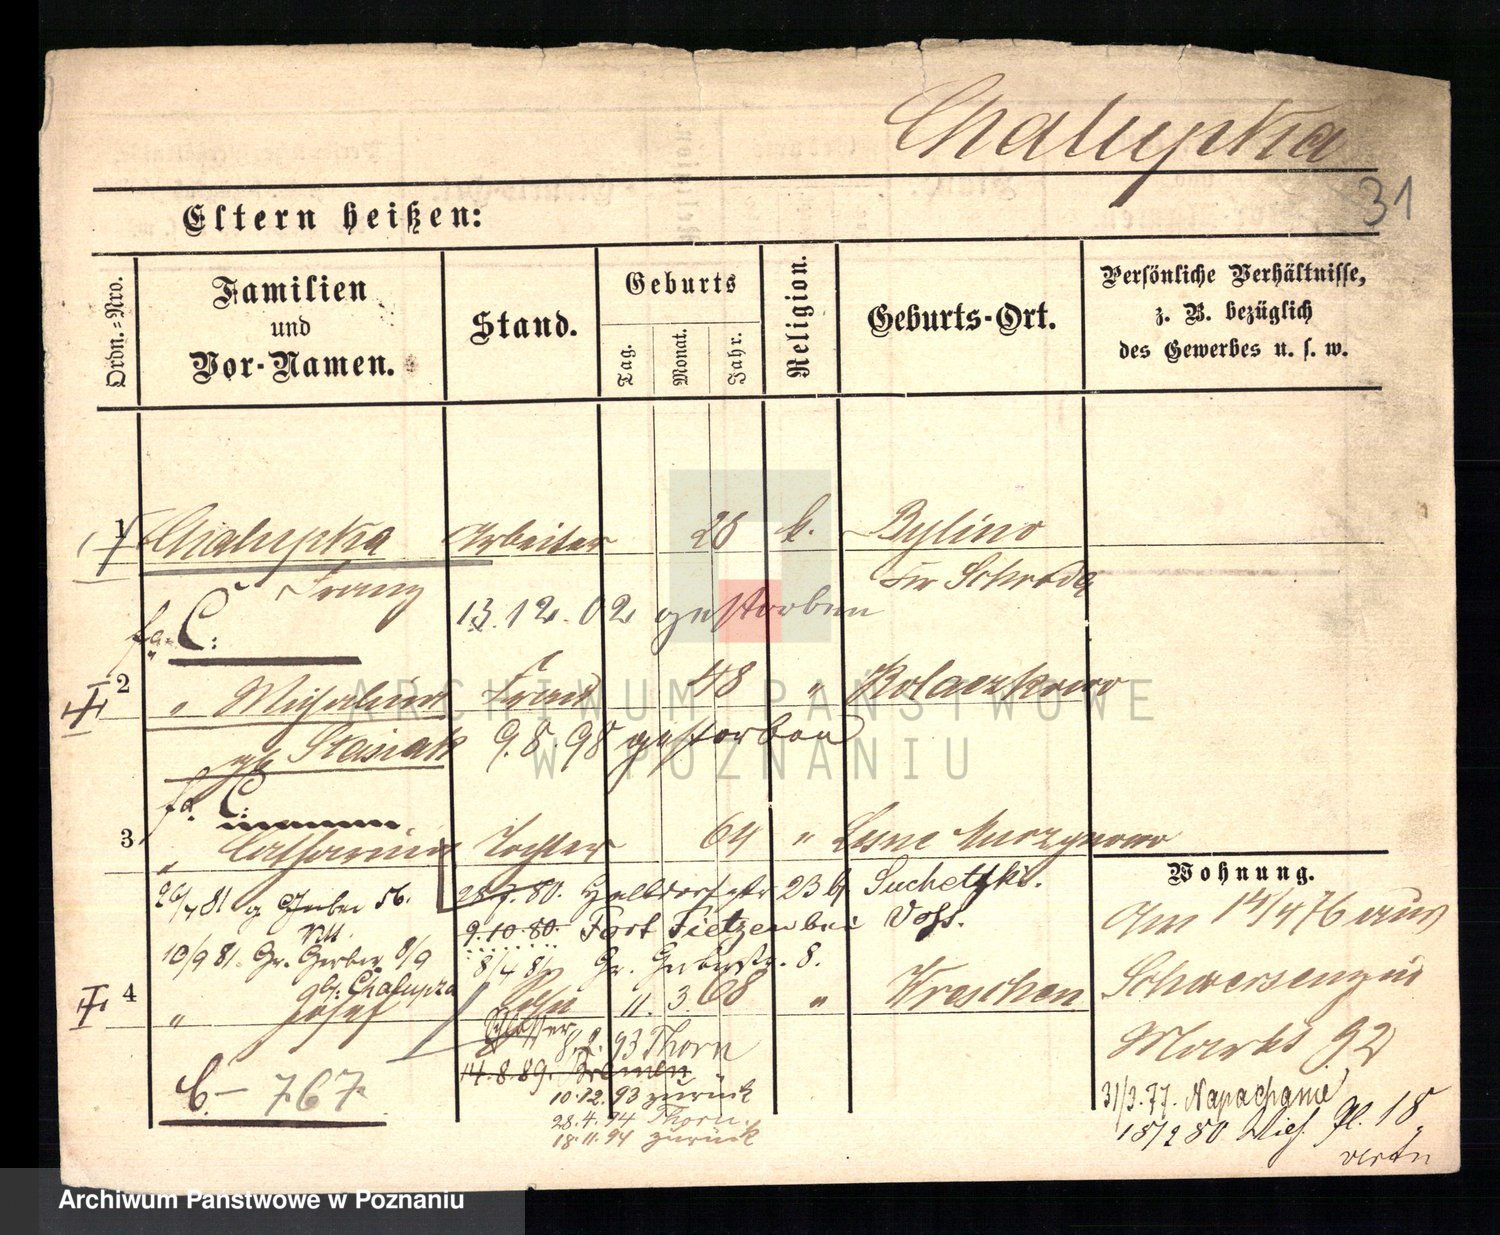 Chalupka
31
Eltern heißen:
Ordn.=Nro.
Familien
und
Vor-Namen.
Stand.
Geburts
Tag.
Monat.
Jahr.
Religion.
Geburts-Ort.
Persönliche Verhältnisse,
z. B. bezüglich
des Gewerbes u. s. w.
1 Chalupka Arbeiter 28 k. Bylino
Franz Kr Schroda
13.12.02 gestorben
fa. C:
2 " Michalina Frau 48 " Kolaczkowo
Stasiak 9.8.98 gestorben
fa. C:
3 " Catharina Tochter 64 "
28.7.80. 23 Suchetzki.
9.10.80. Fort Tietzen bei Voss.
10/9 81. Gr. Gerber 8/9 8/4 81 Gr. Gerberstr. 8.
Chalupka
4 " Josef Sohn 11. 3. 68 " Wreschen
Schlosser
8.2.93 Thorn
14.8.89. Bremen
10.12.93 zurück
28.4.94 Thorn
18.11.94 zurück
C.- 767.
Wohnung.
Am 14/4 76 aus
Schwersenz in
Markt 92
31/3.77. Napachanie
18/2 80 Pl. 18
ARCHIWUM PAŃSTWOWE
W POZNANIU
Archiwum Państwowe w Poznaniu